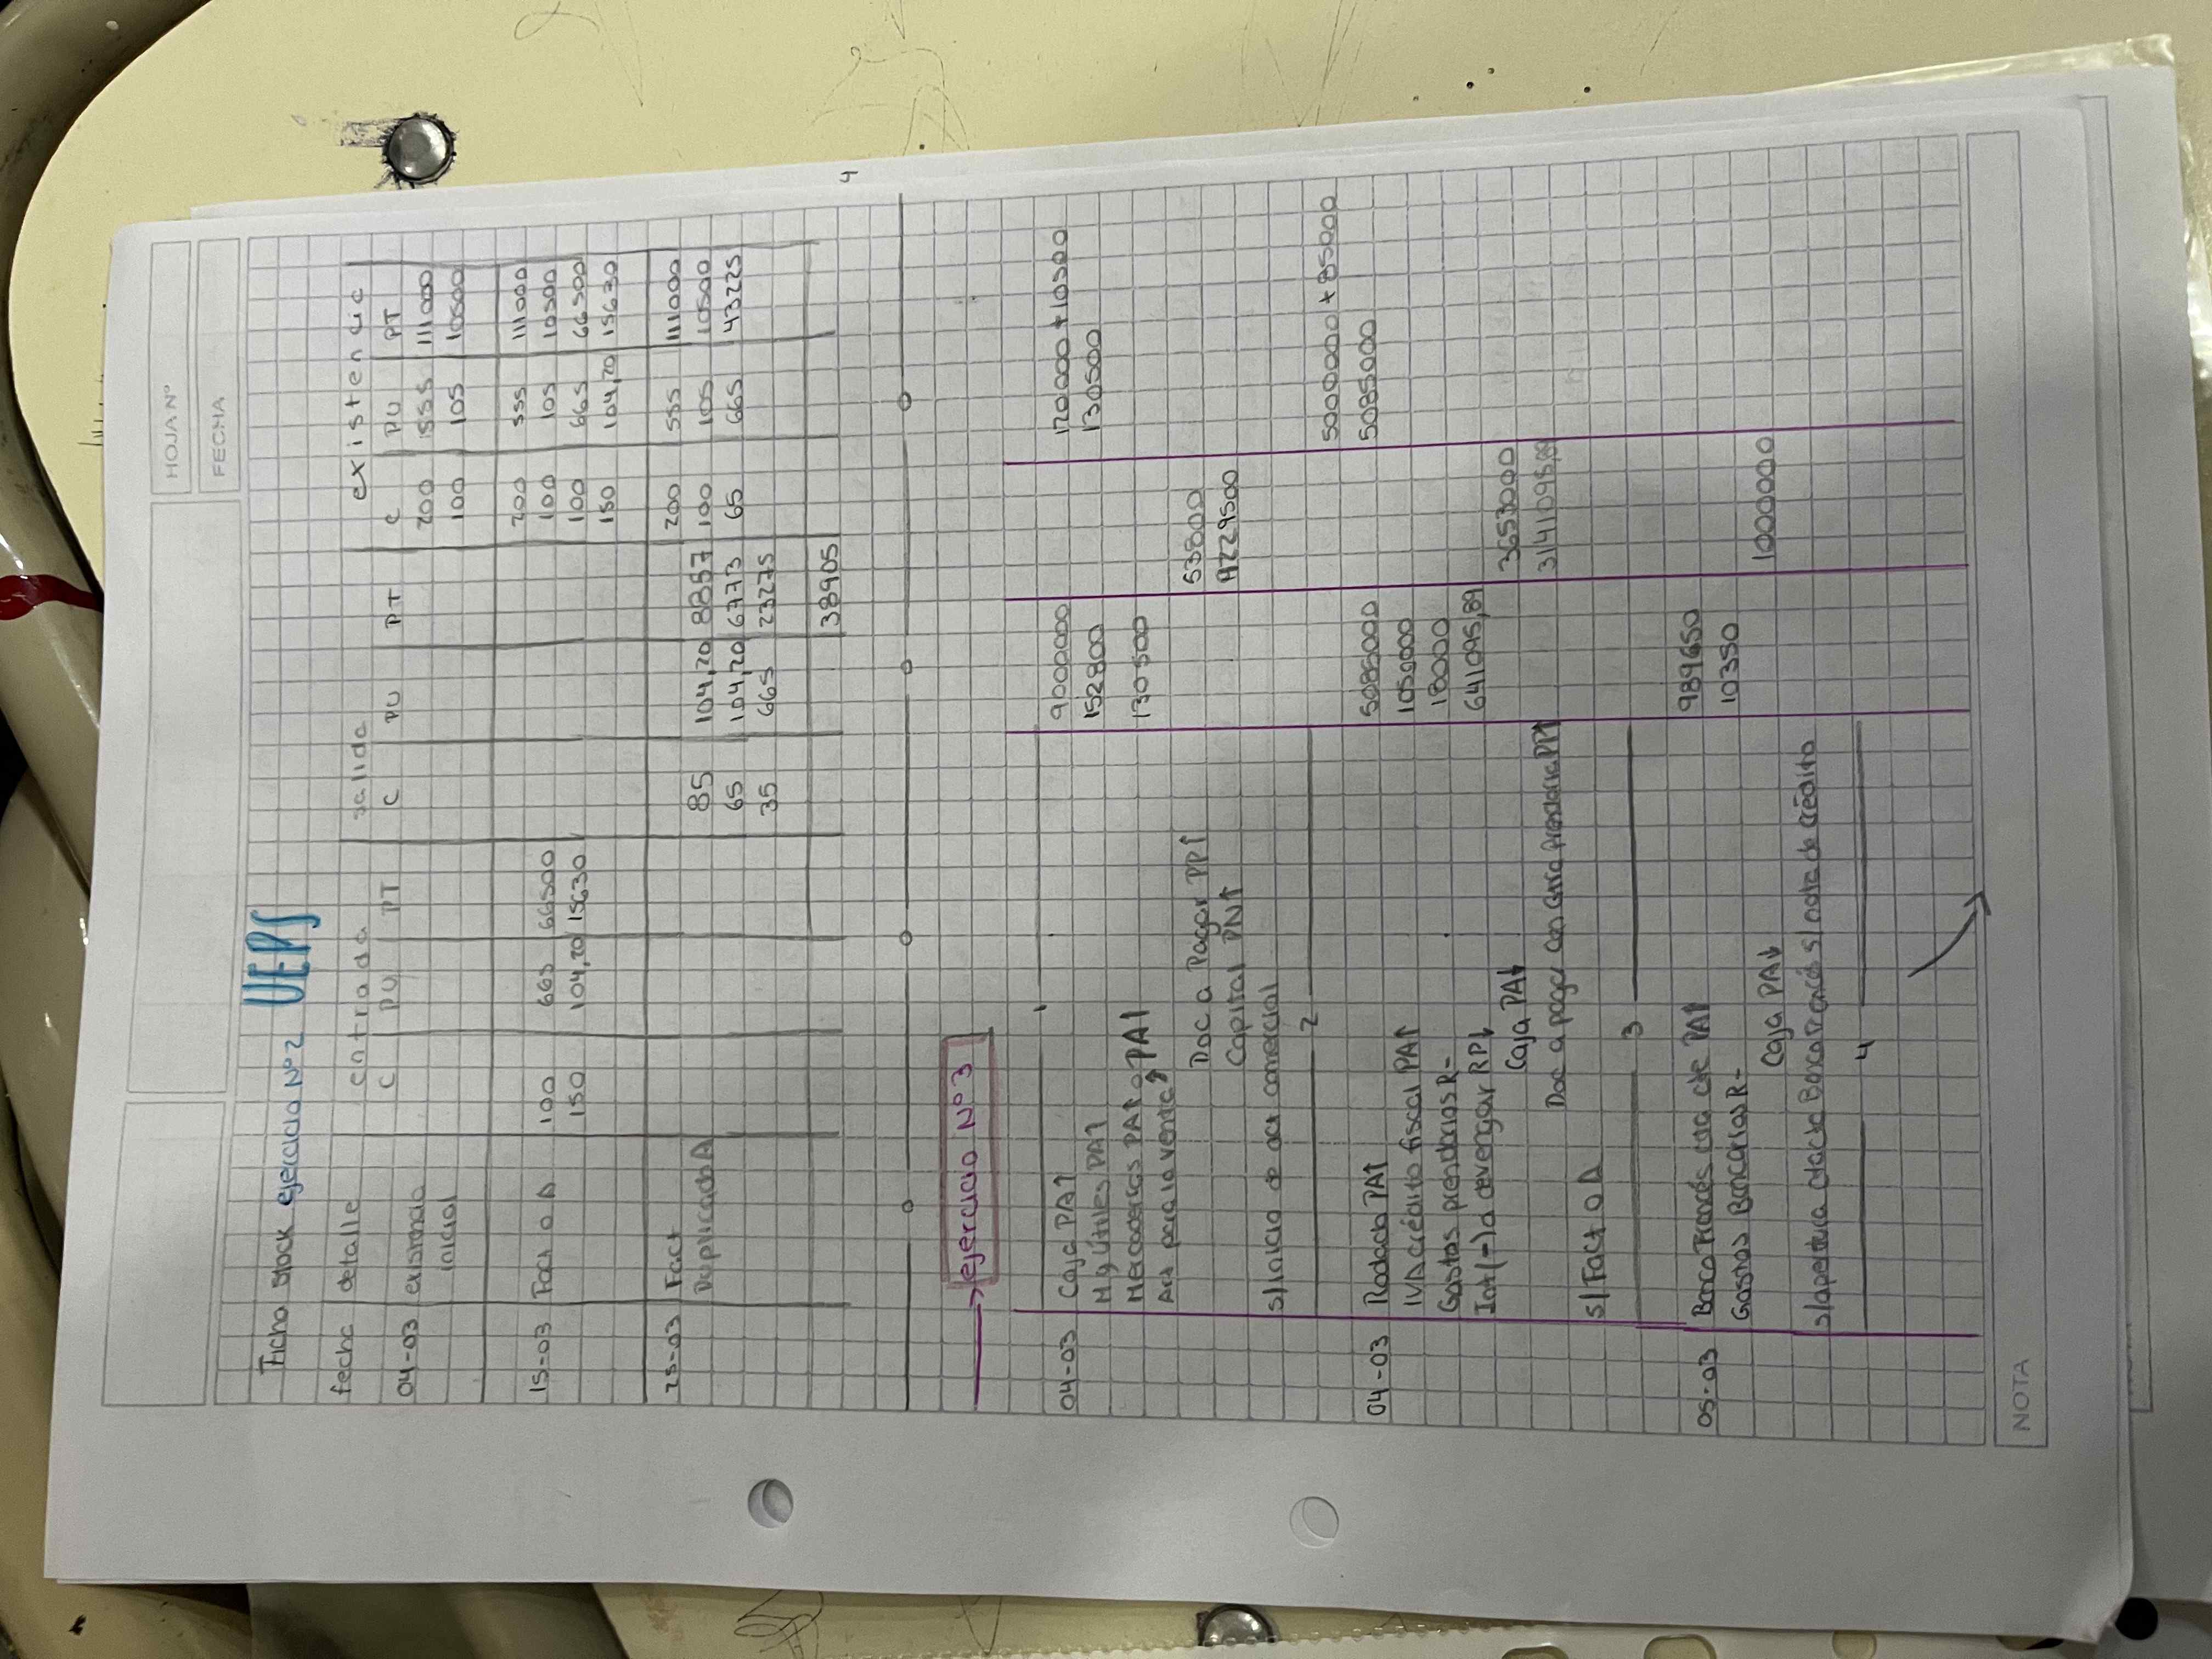 HOJA Nº
FECHA
Ficha stock ejercicio Nº2 UEPS
fecha detalle entrada salida existencia
C PU PT C PU PT C PU PT
04-03 existencia 200 555 111000
inicial 100 105 10500
200 555 111000
15-03 Fact o A 100 665 66500 100 105 10500
150 104,20 15630 100 665 66500
150 104,20 15630
25-03 Fact 200 555 111000
Duplicado A 85 104,20 8857 100 105 10500
65 104,20 6773 65 665 43225
35 665 23275
38905
4
→ ejercicio Nº3
1
04-03 Caja PA↑ 9000000 120000+10500
M y Útiles PA↑ 152800 130500
Mercaderías PA↑ o PA↑
Act para la venta 130500
Doc a Pagar PP↑ 53800
Capital PN↑ 9229500
s/inicio de act comercial
2
5000000+85000
04-03 Rodado PA↑ 5085000 5085000
IVA crédito fiscal PA↑ 1050000
Gastos prendarios R- 18000
Int(-) a devengar RP↓ 641095,89
Caja PA↓ 3653000
Doc a pagar con gara prendaria PP↑ 3141095,89
s/Fact o A
3
05-03 Banco Francés cta cte PA↑ 989650
Gastos Bancarios R- 10350
Caja PA↓ 1000000
s/apertura cta cte Banco Francés s/nota de crédito
4
NOTA